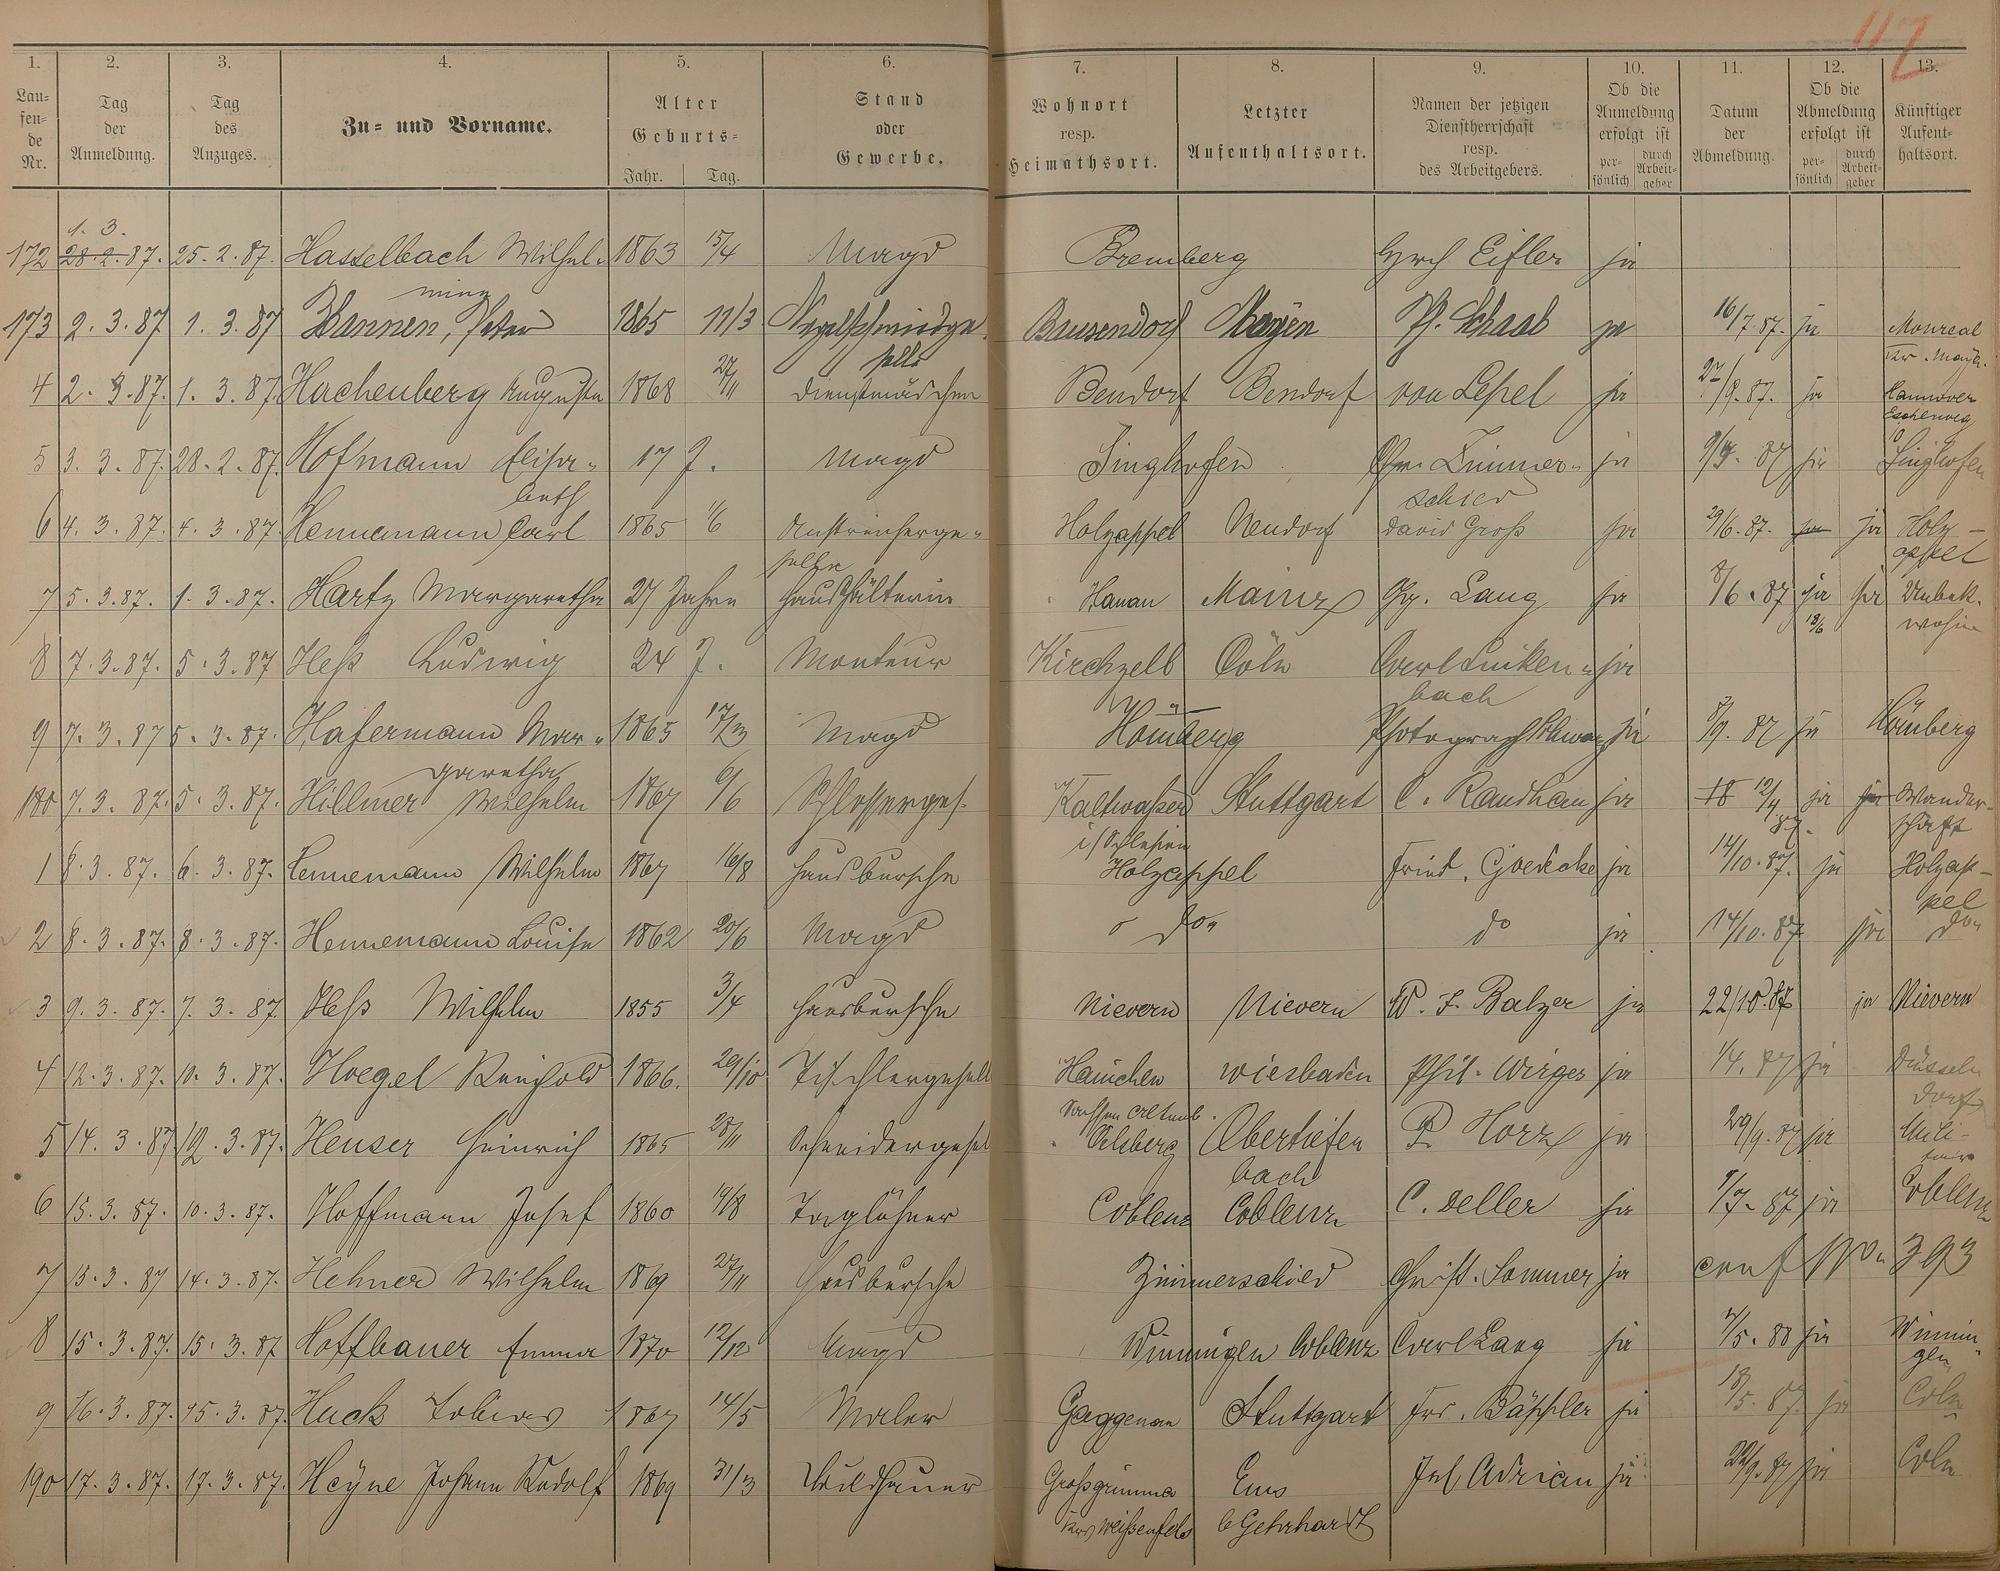 117
1. 2. 3. 4. 5. 6. 7. 8. 9. 10. 11. 12. 13.
Lau=fen=de Nr. Tag der Anmeldung. Tag des Anzuges. Zu= und Vorname. Alter Geburts= Jahr. Tag. Stand oder Gewerbe. Wohnort resp. Heimathsort. Letzter Aufenthaltsort. Namen der jetzigen Dienstherrschaft resp. des Arbeitgebers. Ob die Anmeldung erfolgt ist per=sönlich durch Arbeit=geber Datum der Abmeldung. Ob die Abmeldung erfolgt ist per=sönlich durch Arbeit=geber Künftiger Aufent=haltsort.
1. 3.
172 28.2.87. 25.2.87. Hasselbach Wilhel= 1863 15/4 Magd Bremberg Eifler ja
mine
173 2.3.87 1.3.87 Hannen, Peter 1865 11/3 Nagelschmiedge= Bausendorf Mayen Ph. Schaab ja 16/7.87. ja Monreal
selle Kr. Mayen
4 2.3.87. 1.3.87 Hachenberg Auguste 1868 27/11 Dienstmädchen Bendorf Bendorf von Lepel ja 27/9.87. ja Hannover
Escherweg
5 3.3.87. 28.2.87. Hofmann Elisa= 17 J. Magd Singhofen Chr. Zimmer= ja 87 ja Singhofen
beth schied
6 4.3.87. 4.3.87. Hennemann Carl 1865 1/6 Anstreicherge= Holzappel Nendorf David Groß ja 29/6.87. ja ja Holz=
selle appel
7 5.3.87. 1.3.87. Hartz Margaretha 27 Jahre Haushälterin Hanau Mainz Gg. Lang ja 8/6.87 ja ja Unbek.
18/6 wohin
8 7.3.87. 5.3.87 Heß Ludwig 24 J. Monteur Kirchzell Cöln Carl Linken= ja
bach
9 7.3.87 5.3.87. Hafermann Mar= 1865 17/3 Magd Hömberg Photograph Schwarz ja 87 ja Hömberg
garetha
180 7.3.87. 5.3.87. Hillmer Wilhelm 1867 6/6 Schlosserges. Kaltwasser Stuttgart C. Randhan ja 18 12/4 ja ja Wander=
i/Schlesien 87. schaft
1 8.3.87. 6.3.87. Hennemann Wilhelm 1867 16/8 Hausbursche Holzappel Fried. Goedecke ja 14/10.87. ja Holzap=
pel
2 8.3.87. 8.3.87. Hennemann Louise 1862 20/6 Magd do do ja 14/10.87 ja do
3 9.3.87. 7.3.87. Heß Wilhelm 1855 3/4 Hausbursche Nievern Nievern W. J. Balzer ja 22/10.87 ja Nievern
4 12.3.87. 10.3.87. Hoegel Reinhold 1866. 29/10 Tischlergesell Hainchen Wiesbaden Phil. Wirges ja 1/4.87 ja Düssel=
Sachsen Altenb. dorf
5 14.3.87 12.3.87. Heuser Heinrich 1865 28/11 Schneidergesel Oelsberg Obertiefen P. Horz ja 29/9.87 ja Mili=
bach tair
6 15.3.87. 10.3.87. Hoffmann Josef 1860 19/8 Taglöhner Coblenz Coblenz C. Deller ja 87 ja Coblenz
7 15.3.87 14.3.87. Hehner Wilhelm 1869 27/11 Hausbursche Zimmerschied Christ. Sommer ja conf No. 393
8 15.3.87. 15.3.87 Hoffbauer Emma 1870 12/12 Magd Winningen Coblenz Carl Lang ja 5.88 ja Winnin=
gen
9 16.3.87. 15.3.87. Huck Tobias 1867 14/5 Maler Gaggenau Stuttgart Frd. Bäppler ja 18/5.87. ja Cöln
190 17.3.87. 17.3.87. Heyne Johann Rudolf 1869 31/3 Bildhauer Großgrimma Ems Jul Adrian ja 22/9.87 ja Cöln
Krs Weißenfels b Gehrhardt